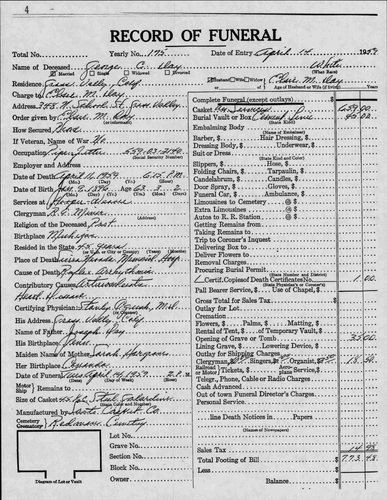 4
RECORD OF FUNERAL
Total No. Yearly No. 175 Date of Entry April 14 19
Name of Deceased George C. May White
Married Single Widowed Divorced (What Race)
Residence Grass Valley, Calif. Husband Wife Widow
Charge to M. May Age of Husband or Wife (if living)
Address 348 N. School St. Grass Valley
Order given by M. May
(or informant)
How Secured
If Veteran, Name of War No
Occupation Pipe Fitter
(Social Security Number)
Employer and Address
Date of Death April 11, 1959 6:15 P.M.
(Date)
Date of Birth 1896 Age 63 3 2
Services at Hooper Weaver
Clergyman
(Address)
Religion of the Deceased Prot
Birthplace Michigan
Resided in the State 45 years
Place of Death Sierra Nevada Memorial Hosp.
Cause of Death
Contributory Causes Arteriosclerotic
Heart Disease
Certifying Physician Stanley M.D.
His Address Grass Valley, Calif.
Name of Father Joseph May
His Birthplace Penn.
Maiden Name of Mother Sarah Hargrave
Her Birthplace Canada
Date of Funeral Tues. April 14, 1959 2 P.M.
(Date) (Day of Week) (Hour)
Motor Ship Remains to
Size of Casket Steel Gabardine
(State Color and Number)
Manufactured by Santa Casket Co.
Cemetery Crematory
Diagram of Lot or Vault
Lot No.
Grave No.
Section No.
Block No.
Owner
Complete Funeral (except outlays) $
Casket Services 659.00
Burial Vault or Box Cement 95.00
(State Kind)
Embalming Body
(Name of Embalmer)
Barber, Hair Dressing,
Dressing Body, Underwear,
Suit or Dress
(State Kind and Color)
Slippers, Hose,
Folding Chairs, Tarpaulin,
Candelabrum, Candles,
Door Spray, Gloves,
Funeral Car, Ambulance,
Limousines to Cemetery @
Extra Limousines @
Autos to R. R. Station @
Getting Remains from
Taking Remains to
Trip to Coroner's Inquest
Delivery Box to
Deliver Flowers to
Removal Charges
Procuring Burial Permit
(State Number and District)
1 Certif. Copies of Death Certificates No. 1.00
(State Physician's or Coroner's)
Pall Bearer Service, Use of Chapel,
Gross Total for Sales Tax
Outlay for Lot
Cremation
Flowers, Palms, Matting,
Rental of Tent, of Temporary Vault,
Opening of Grave or Tomb 35.00
Lining Grave, Lowering Device,
Outlay for Shipping Charges
Clergyman Singers Organist 18.50
Railroad or Motor Tickets, Aeroplane Service,
Telegr., Phone, Cable or Radio Charges
Cash Advanced
Out of town Funeral Director's Charges
Personal Service
line Death Notices in Papers
(Names of Newspapers)
Sales Tax
Total Footing of Bill
Less
Balance